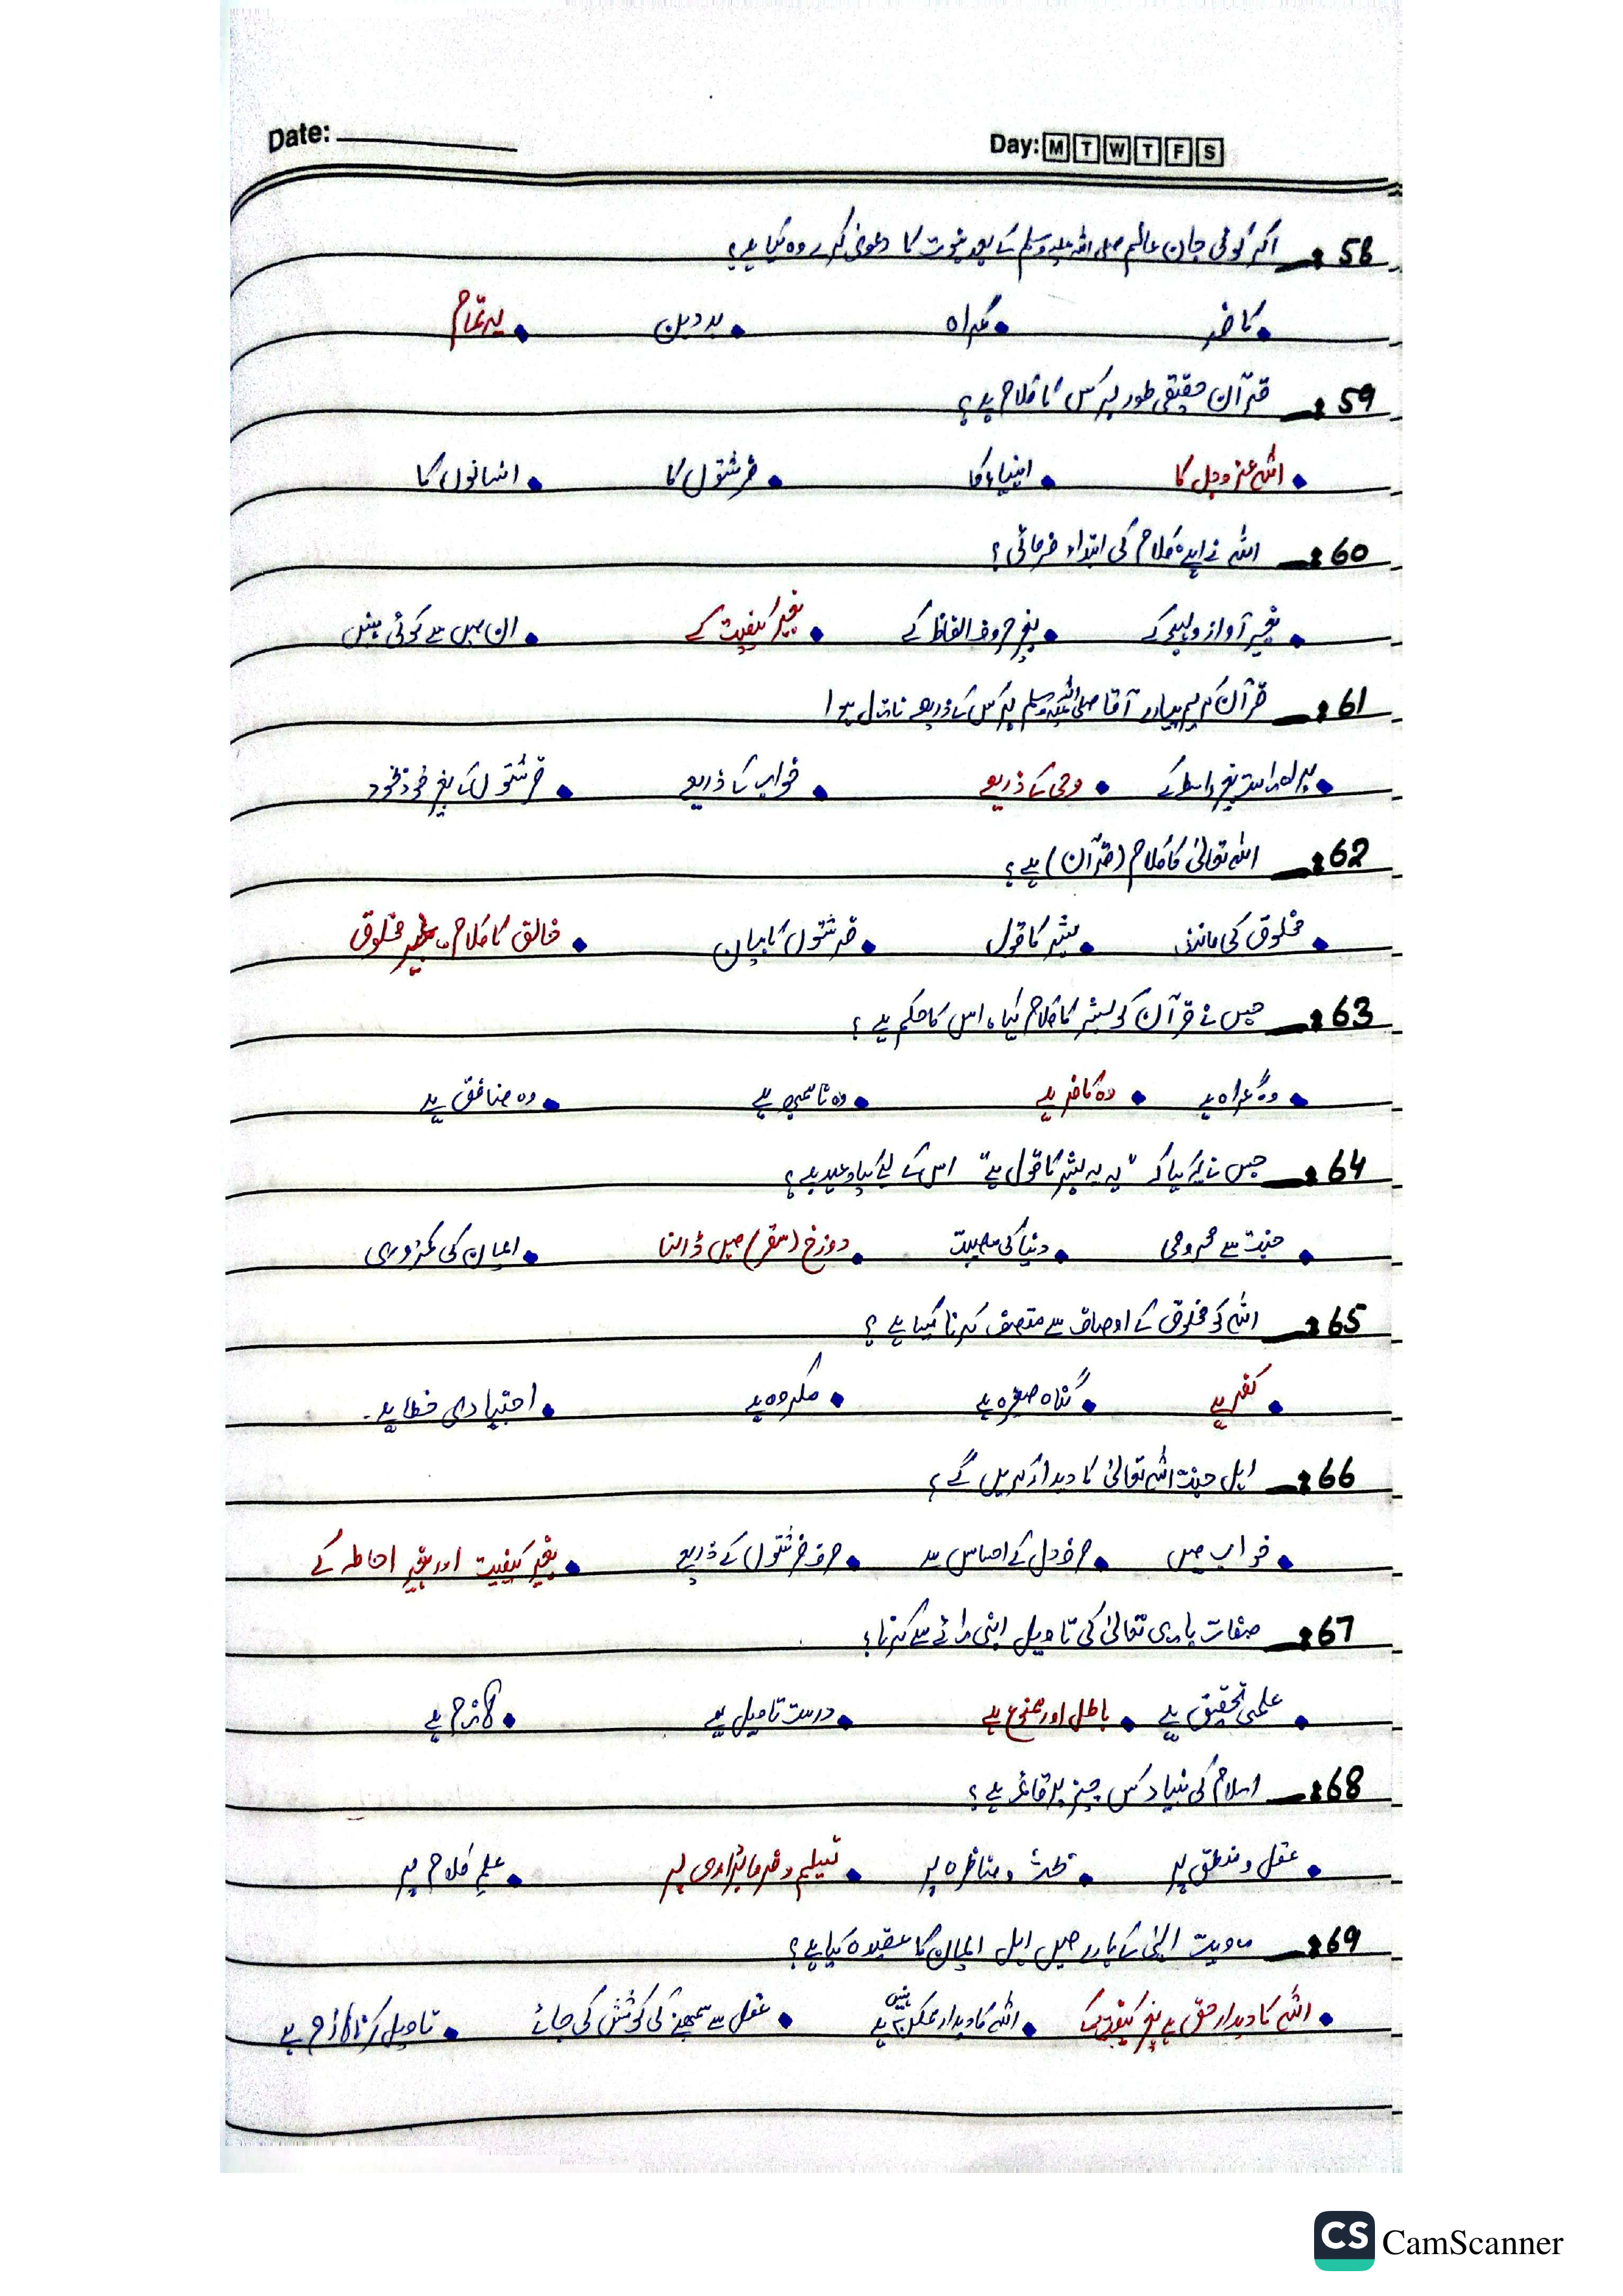 Date: ________ Day: M T W T F S
58ـ اگر کوئی جان عالم صلی اللہ علیہ وسلم کے بعد نبوت کا دعویٰ کرے وہ کیا ہے؟
• کافر • گمراہ • بد دین • یہ تمام
59ـ قرآن حقیقی طور پر کس کا کلام ہے؟
• اللہ عزوجل کا • انبیاء کا • فرشتوں کا • انسانوں کا
60ـ اللہ نے اپنے کلام کی ابتداء فرمائی؟
• بغیر آواز و لہجے کے • بغیر حروف الفاظ کے • بغیر کیفیت کے • ان میں سے کوئی نہیں
61ـ قرآن کریم پیارے آقا صلی اللہ علیہ وسلم پر کس کے ذریعے نازل ہوا
• براہ راست بغیر واسطے کے • وحی کے ذریعے • خواب کے ذریعے • فرشتوں کے بغیر خود بخود
62ـ اللہ تعالیٰ کا کلام (قرآن) ہے؟
• مخلوق کی مانند • بشر کا قول • فرشتوں کا بیان • خالق کا کلام، غیر مخلوق
63ـ جس نے قرآن کو بشر کا کلام کہا، اس کا حکم ہے؟
• وہ گمراہ ہے • وہ کافر ہے • وہ ناسمجھ ہے • وہ منافق ہے
64ـ جس نے یہ کہا کہ "یہ بشر کا قول ہے" اس کے لیے کیا وعید ہے؟
• جنت سے محرومی • دنیا کی مصیبت • دوزخ (سقر) میں ڈالنا • ایمان کی کمزوری
65ـ اللہ کو مخلوق کے اوصاف سے متصف کرنا کیسا ہے؟
• کفر ہے • گناہ صغیرہ ہے • مکروہ ہے • اجتہادی خطا ہے۔
66ـ اہل جنت اللہ تعالیٰ کا دیدار کریں گے؟
• خواب میں • صرف دل کے احساس سے • صرف فرشتوں کے ذریعے • بغیر کیفیت اور بغیر احاطہ کے
67ـ صفات باری تعالیٰ کی تاویل اپنی رائے سے کرنا؟
• علمی تحقیق ہے • باطل اور ممنوع ہے • درست تاویل ہے • لازم ہے
68ـ اسلام کی بنیاد کس چیز پر قائم ہے؟
• عقل و منطق پر • بحث و مناظرہ پر • تسلیم و فرمانبرداری پر • علم کلام پر
69ـ رویت الہٰی کے بارے میں اہل ایمان کا عقیدہ کیا ہے؟
• اللہ کا دیدار حق ہے بغیر کیفیت کے • اللہ کا دیدار ممکن نہیں ہے • عقل سے سمجھنے کی کوشش کی جائے • تاویل کرنا لازم ہے
CS CamScanner